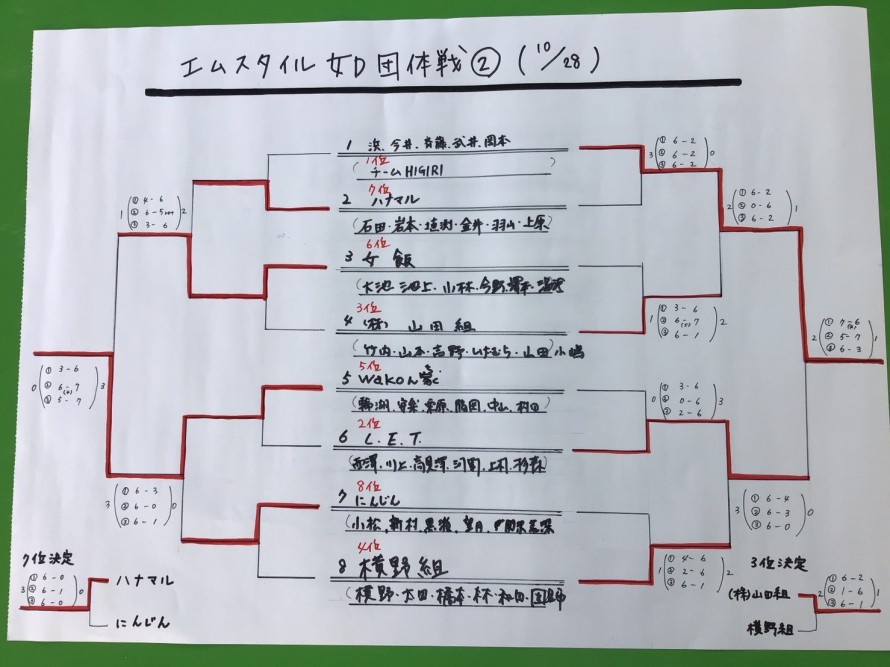 エムスタイル 女D 団体戦② (10/28)
1 浜、今井、斉藤、武井、岡本
1位
(チームHIGIRI)
7位
2 ハナマル
(石田・岩本・・金井・羽山・上原)
6位
3 女飯
(大池 池上、小林、今野
3位
4 (株) 山田組
(竹内・山本・吉野・いたむら・山田)小嶋
5位
5 wakon
栗原、中山、村田)
2位
6 L.E.T.
(西澤、川上、高見澤、上村
8位
7 にんじん
(小松、新村、黒、望月
4位
8 横野組
(横野・太田・橋本・林・和田・
3 (① 6-2 ② 6-2 ③ 6-2) 0
1 (① 3-6 ② 6-7 ③ 6-1) 2
0 (① 3-6 ② 0-6 ③ 2-6) 3
1 (① 4-6 ② 2-6 ③ 6-1) 2
2 (① 6-2 ② 0-6 ③ 6-2) 1
3 (① 6-4 ② 6-3 ③ 6-0) 0
2 (① 7-6 ② 5-7 ③ 6-3) 1
1 (① 4-6 ② 6-5 ③ 3-6) 2
3 (① 6-3 ② 6-0 ③ 6-1) 0
0 (① 3-6 ② 6-7 ③ 5-7) 3
7位決定
3 (① 6-0 ② 6-1 ③ 6-0) 0
ハナマル
にんじん
3位決定
(株)山田組
横野組
2 (① 6-2 ② 1-6 ③ 6-1) 1